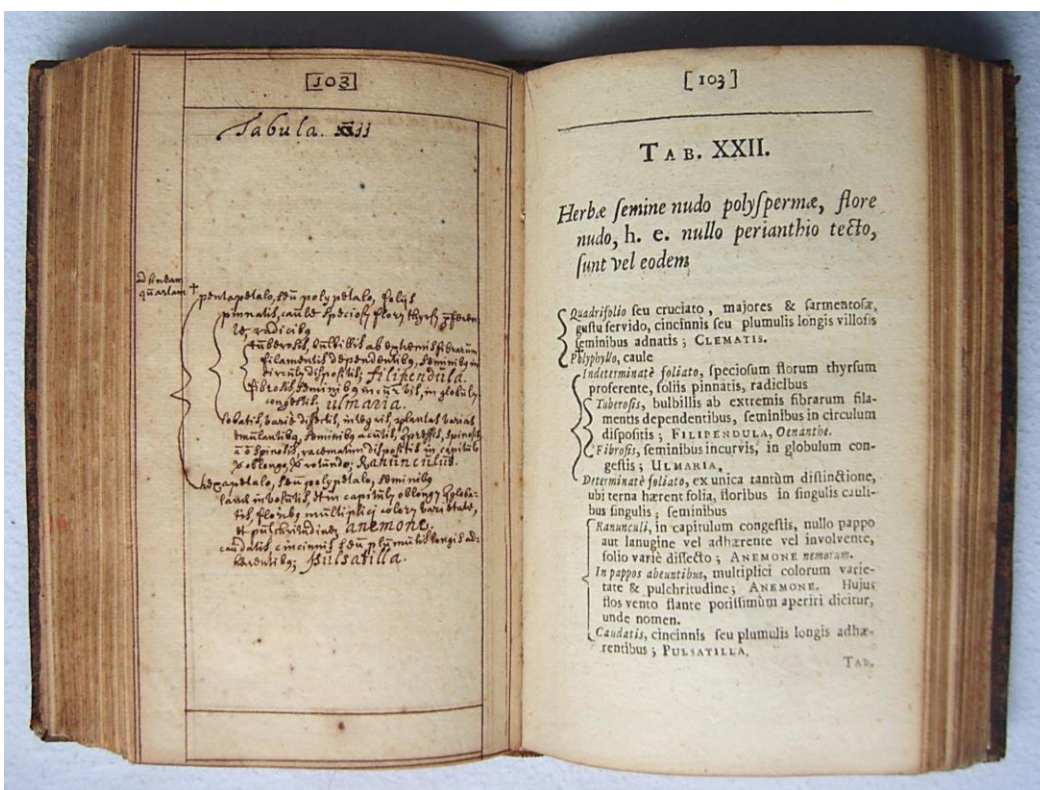 [103]
Tabula. XXII
ad lineam
quartam †
pentapetalo, seu polypetalo, folijs
pinnatis, caule speciosū florū thyrsū
radicibꝫ
tuberosis, bulbillis ab extremis fibrarum
filamentis dependentibꝫ, seminibꝫ in
circulū dispositis; filipendula.
fibrosis, seminibꝫ incurvis, in globulū
congestis. ulmaria.
lobatis, varie dissectis, integris, plantas varias
æmulantibꝫ, seminibꝫ acutis, spinosis
spinosis, racematim dispositis in capitulo
oblongo, rotundo; Ranunculus.
hexapetalo, seu polypetalo, seminibꝫ
lanâ involutis, et in capitulū oblongū
floribꝫ multiplici colorū varietate,
et pulchritudine; anemone.
caudatis cincinnis seu plumulis longis ad-
herentibꝫ; Pulsatilla.
[ 103 ]
TAB. XXII.
Herbæ ſemine nudo polyſpermæ, flore
nudo, h. e. nullo perianthio tecto,
ſunt vel eodem
Quadrifolio ſeu cruciato, majores & ſarmentoſæ,
guſtu fervido, cincinnis ſeu plumulis longis villoſis
ſeminibus adnatis ; CLEMATIS.
Polyphyllo, caule
Indeterminatè foliato, ſpecioſum florum thyrſum
proferente, foliis pinnatis, radicibus
Tuberoſis, bulbillis ab extremis fibrarum fila-
mentis dependentibus, ſeminibus in circulum
diſpoſitis ; FILIPENDULA, Oenanthe.
Fibroſis, ſeminibus incurvis, in globulum con-
geſtis ; ULMARIA.
Determinatè foliato, ex unica tantùm diſtinctione,
ubi terna hærent folia, floribus in ſingulis cauli-
bus ſingulis ; ſeminibus
Ranunculi, in capitulum congeſtis, nullo pappo
aut lanugine vel adhærente vel involvente,
folio variè diſſecto ; ANEMONE nemorum.
In pappos abeuntibus, multiplici colorum varie-
tate & pulchritudine ; ANEMONE. Hujus
flos vento flante potiſſimùm aperiri dicitur,
unde nomen.
Caudatis, cincinnis ſeu plumulis longis adhæ-
rentibus ; PULSATILLA.
TAB.